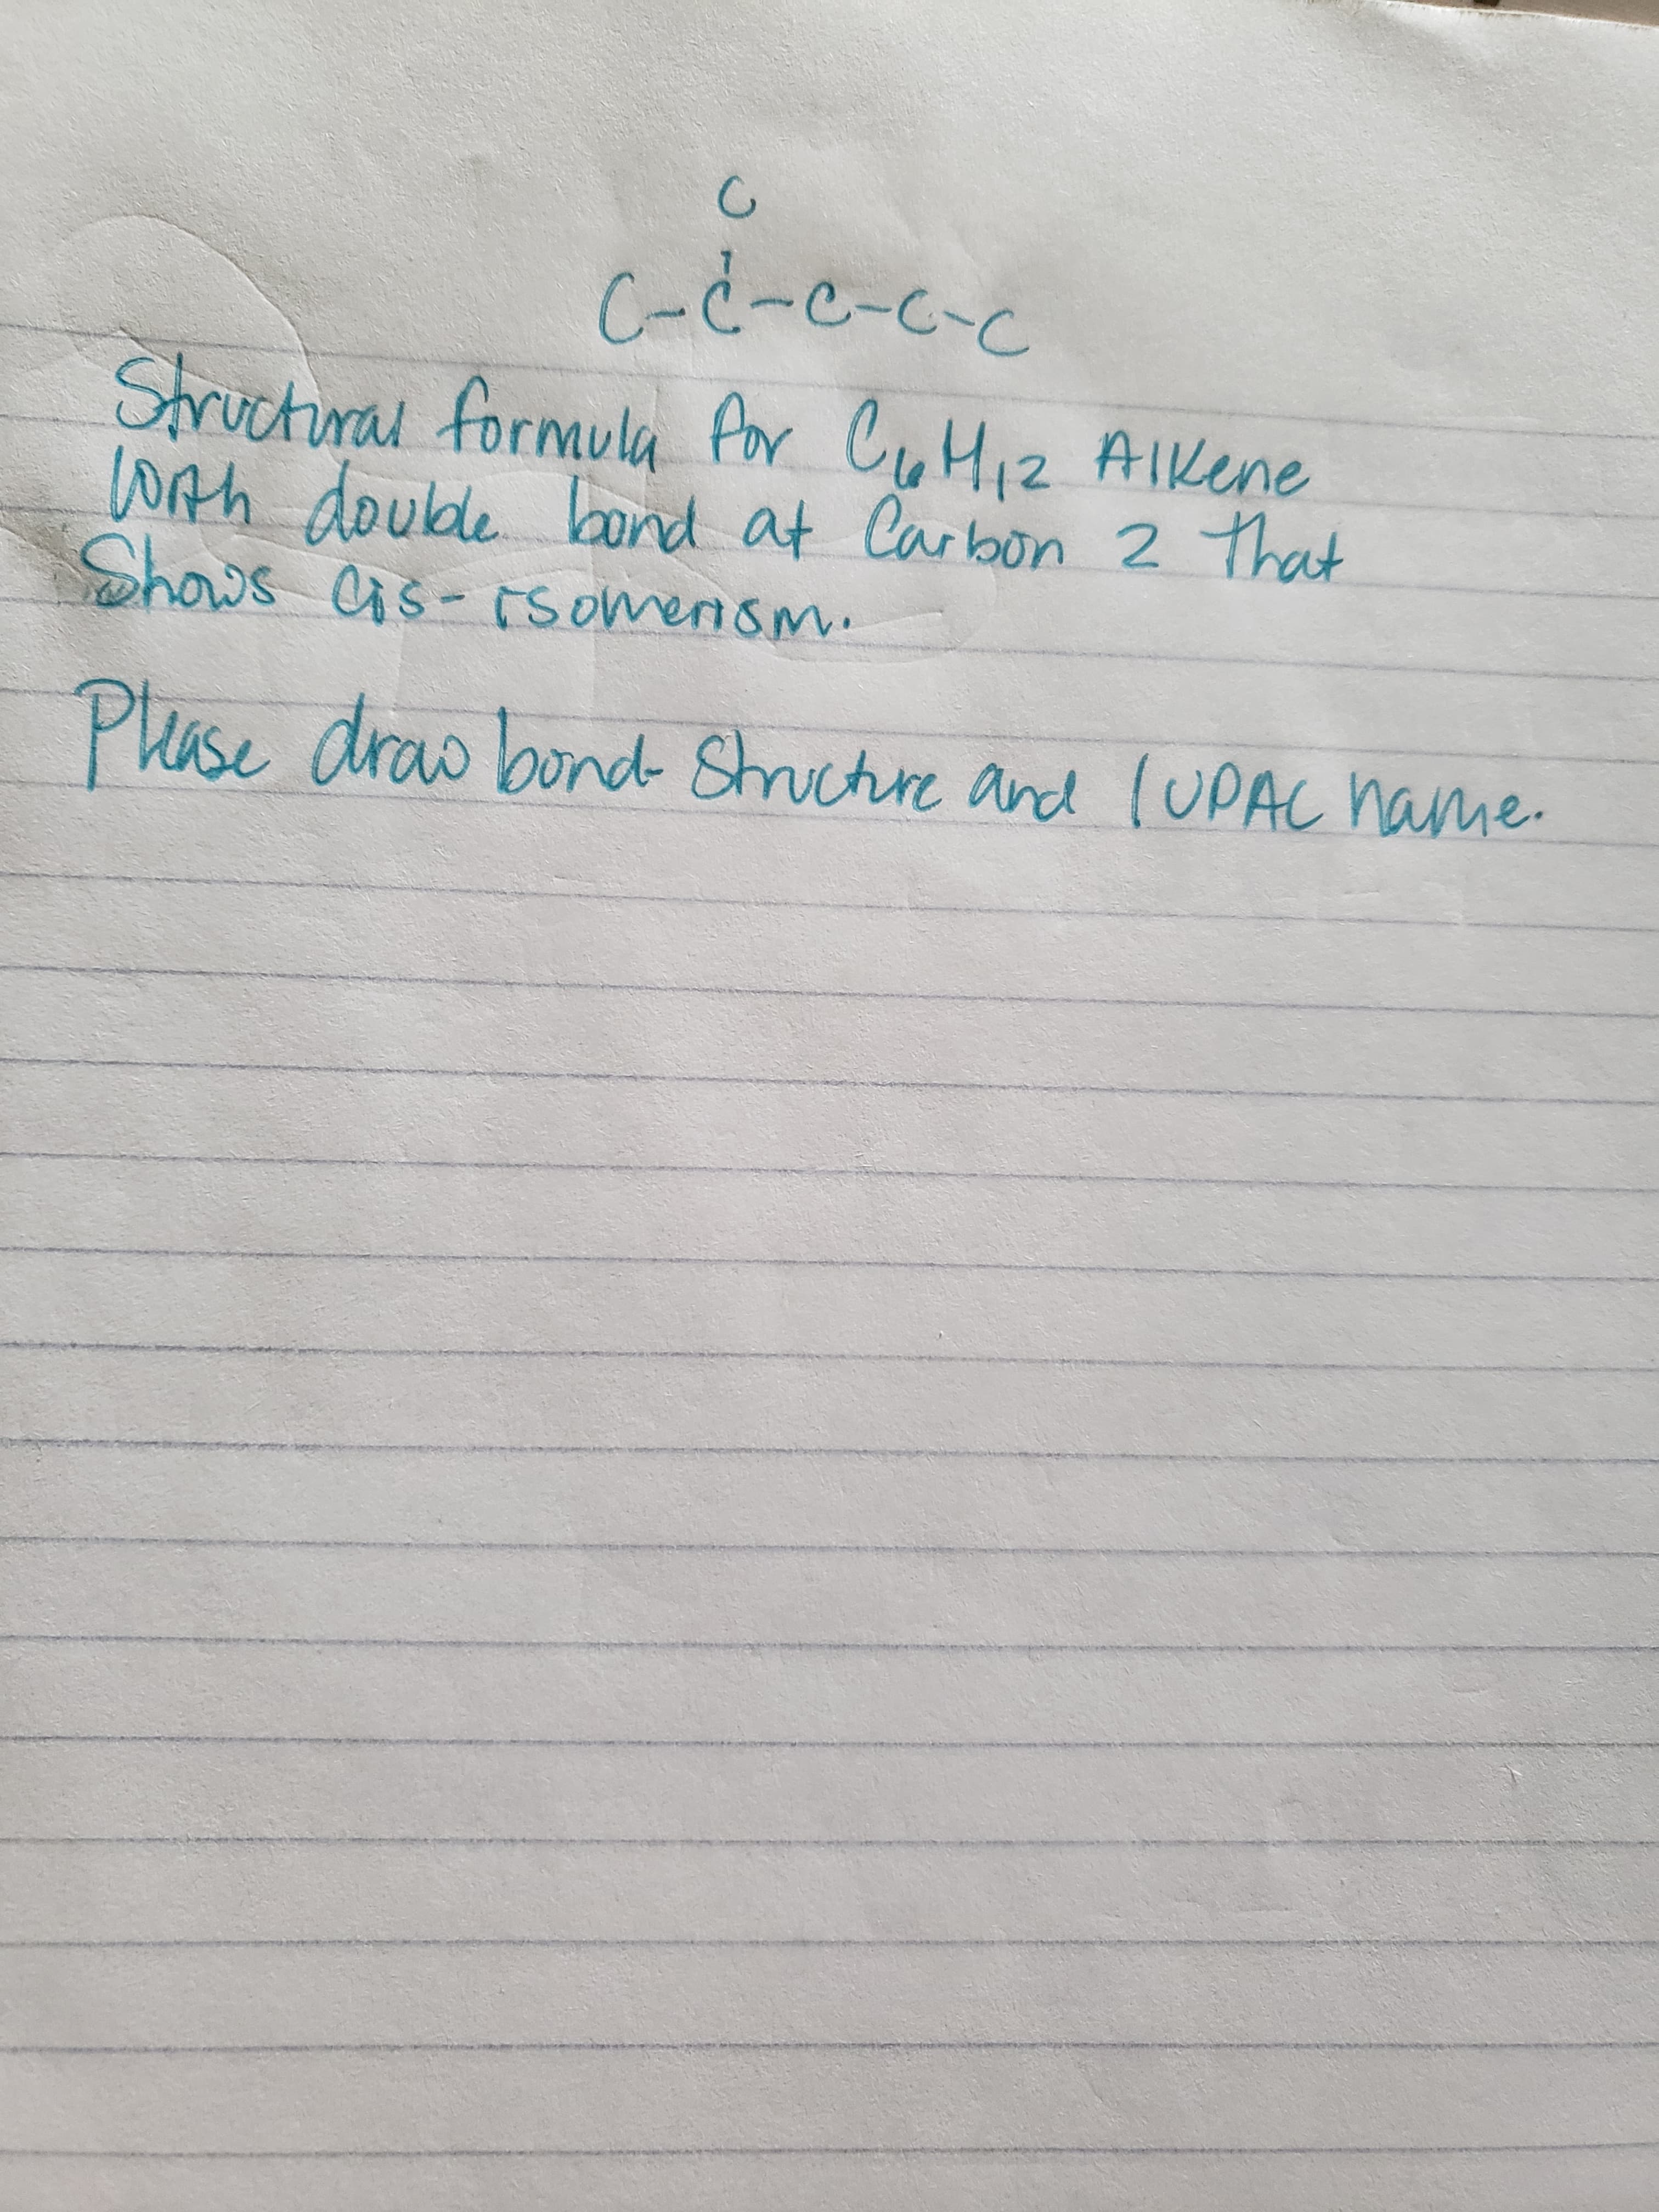 C
C-C-C-C-C
Structural formula for C6H12 Alkene
With double bond at Carbon 2 that
Shows Cis-isomerism.
Please draw bond-Structure and IUPAC name.